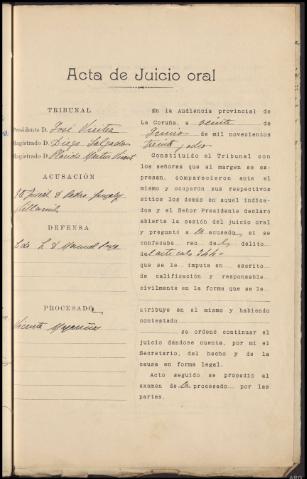 Acta de Juicio oral
TRIBUNAL
Presidente D. José
Magistrado D. Diego Salgado
Magistrado D. Plácido
ACUSACIÓN
DEFENSA
PROCESADO
Vicente
En la Audiencia provincial de
La Coruña, a veinte de
Junio de mil novecientos
treinta y dos
Constituído el Tribunal con
los señores que al margen se ex-
presan, comparecieron ante el
mismo y ocuparon sus respectivos
sitios los demás en aquél indica-
dos y el Señor Presidente declaró
abierta la sesión del juicio oral
y preguntó a la acusada, si se
confesaba reo de delito
del artículo
que se le imputa en escrito
de calificación y responsable
civilmente en la forma que se le
atribuye en el mismo y habiendo
contestado
se ordenó continuar el
juicio dándose cuenta, por mí el
Secretario, del hecho y de la
causa en forma legal.
Acto seguido se procedió al
examen de la procesado por las
partes.